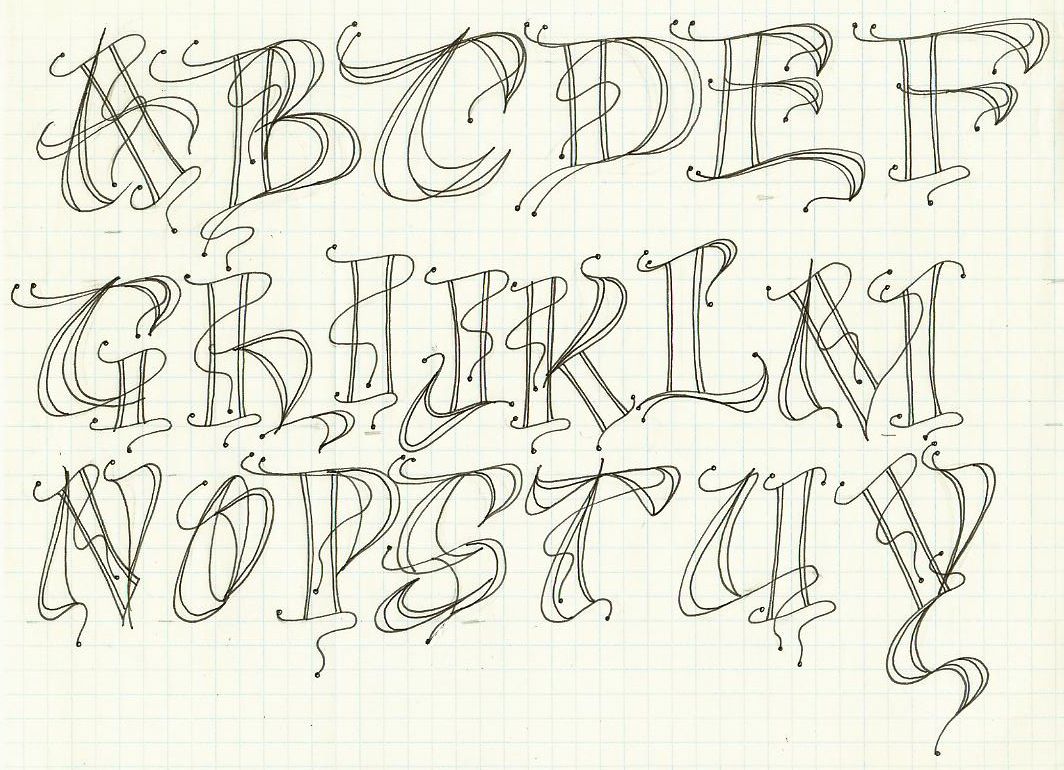 A B C D E F
G H I J K L M
N O P S T U Y